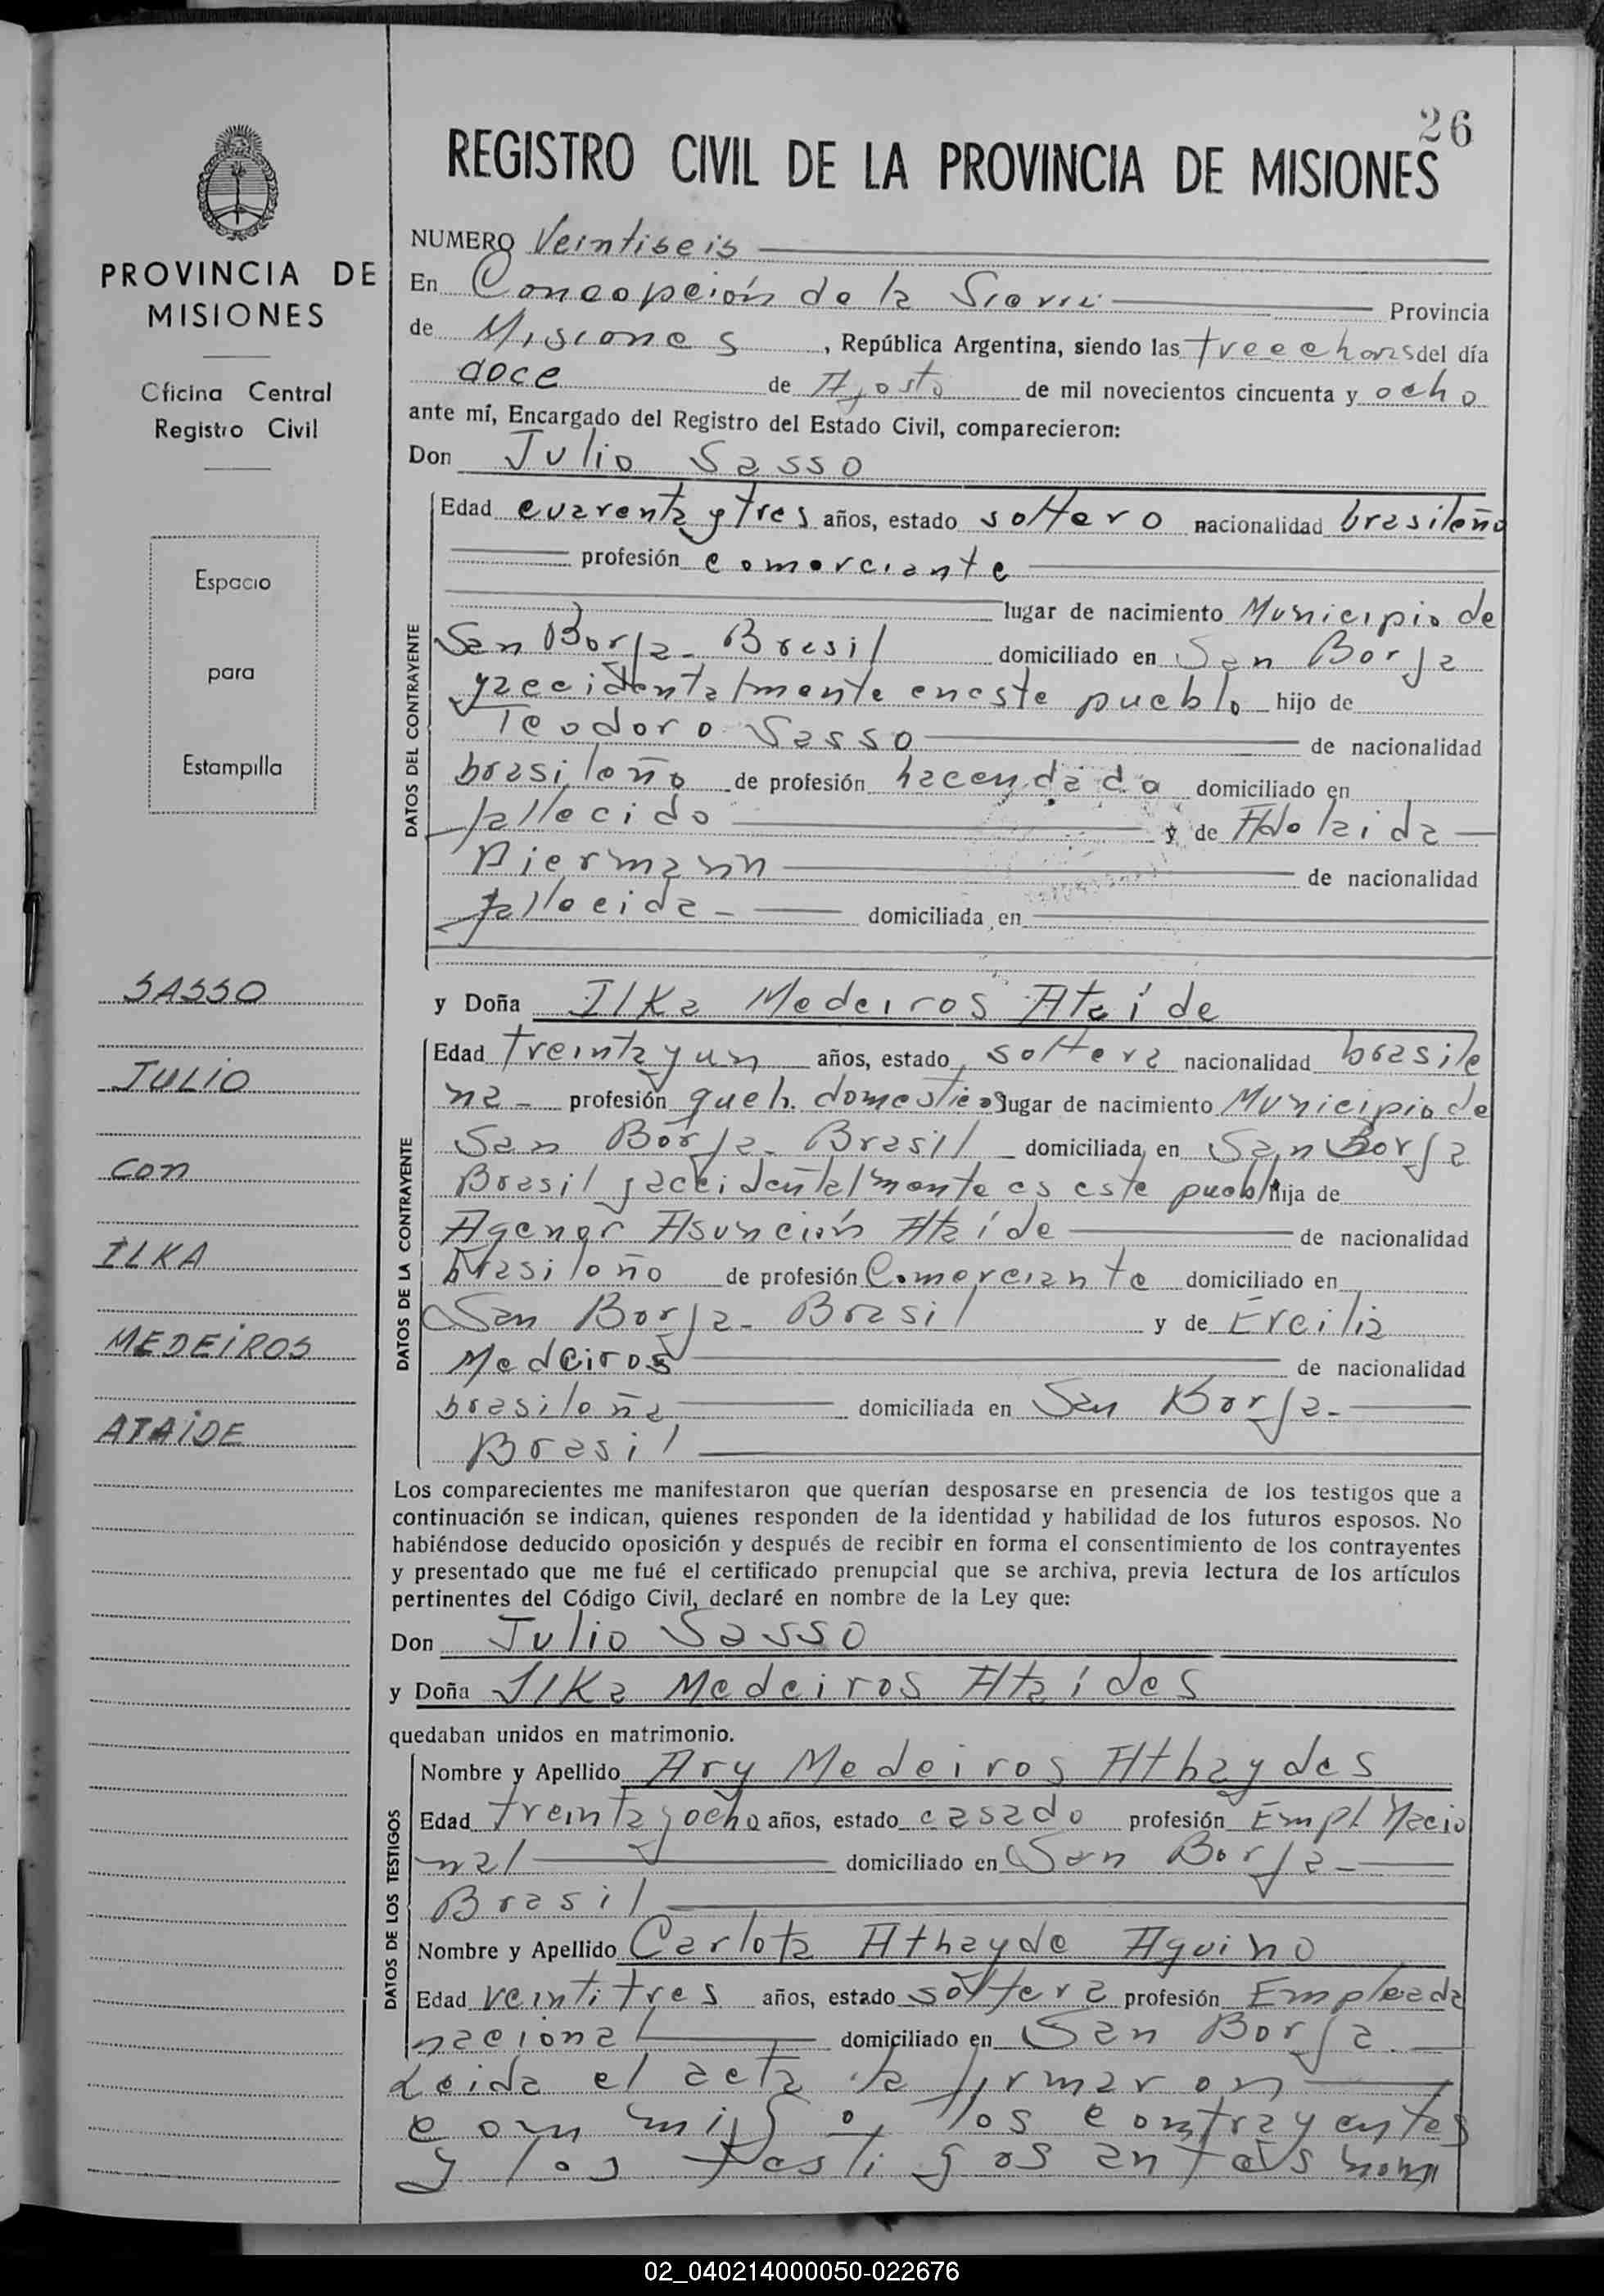 26
REGISTRO CIVIL DE LA PROVINCIA DE MISIONES
PROVINCIA DE
MISIONES
Oficina Central
Registro Civil
Espacio
para
Estampilla
SASSO
JULIO
con
ILKA
MEDEIROS
ATAIDE
NUMERO Veintiseis
En Concepción de la Sierra Provincia
de Misiones, República Argentina, siendo las trece horas del día
doce de Agosto de mil novecientos cincuenta y ocho
ante mí, Encargado del Registro del Estado Civil, comparecieron:
Don Julio Sasso
DATOS DEL CONTRAYENTE
Edad cuarenta y tres años, estado soltero nacionalidad brasileño
profesión comerciante
lugar de nacimiento Municipio de
San Borja - Brasil domiciliado en San Borja
y accidentalmente en este pueblo hijo de
Teodoro Sasso de nacionalidad
brasileño de profesión hacendado domiciliado en
fallecido y de Adelaida
Piermann de nacionalidad
fallecida - domiciliada en
y Doña Ilka Medeiros Ataíde
DATOS DE LA CONTRAYENTE
Edad treinta y un años, estado soltera nacionalidad brasile
na - profesión queh. domestico lugar de nacimiento Municipio de
San Borja - Brasil domiciliada en San Borja
Brasil y accidentalmente es este pueblo hija de
Agenor Asunción Ataíde de nacionalidad
brasileño de profesión Comerciante domiciliado en
San Borja - Brasil y de Ercilia
Medeiros de nacionalidad
brasileña domiciliada en San Borja -
Brasil
Los comparecientes me manifestaron que querían desposarse en presencia de los testigos que a
continuación se indican, quienes responden de la identidad y habilidad de los futuros esposos. No
habiéndose deducido oposición y después de recibir en forma el consentimiento de los contrayentes
y presentado que me fué el certificado prenupcial que se archiva, previa lectura de los artículos
pertinentes del Código Civil, declaré en nombre de la Ley que:
Don Julio Sasso
y Doña Ilka Medeiros Ataídes
quedaban unidos en matrimonio.
DATOS DE LOS TESTIGOS
Nombre y Apellido Ary Medeiros Athaydes
Edad treinta y ocho años, estado casado profesión Empl Nacio
nal domiciliado en San Borja -
Brasil
Nombre y Apellido Carlota Athayde Aquino
Edad veintitres años, estado soltera profesión Empleada
nacional domiciliado en San Borja. -
Leida el acta la firmaron
con migo los contrayentes
y los testigos antes nom
02_040214000050-022676